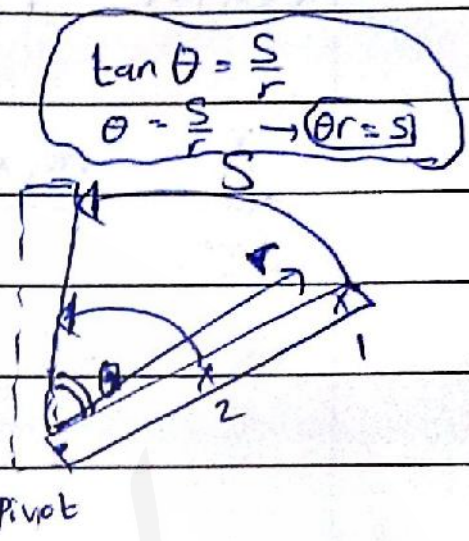 tan θ = S/r
θ = S/r → θr = S
S
r
θ
1
2
Pivot